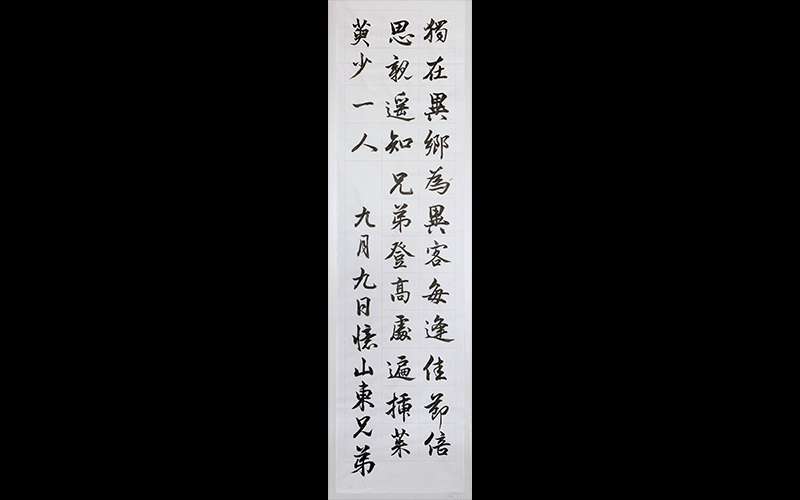 獨在異鄉為異客每逢佳節倍
思親遥知兄弟登高處遍插茱
萸少一人 九月九日憶山東兄弟